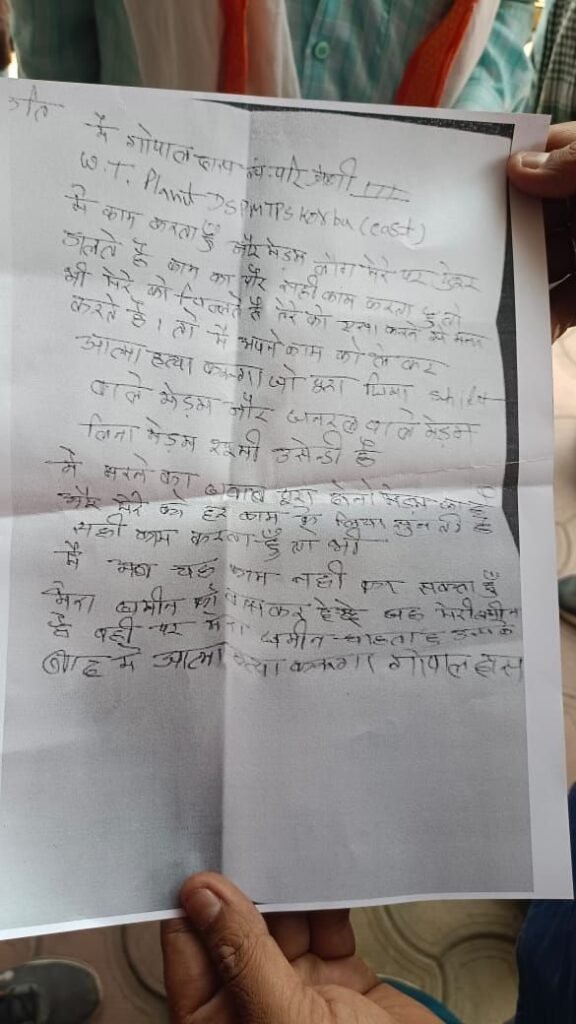 मै गोपाल दास परि श्रेणी III
W.T. Plant DSPMTPS Korba (east)
मै काम करता हूँ और मेडम लोग मेरे पर प्रेशर
डालते है काम का और सही काम करता हूँ तो
भी मेरे को तेरे को करने
करते है। तो मै अपने काम को ले कर
आत्मा हत्या करूगा जो shift
वाले मेडम और जनरल वाले मेडम
लिना मेडम उसेन्डी है
मै मरने का दोनो मेडम का है
और मेरे को हर काम के लिया
सही काम करता हूँ तो भी
मै अब यह काम नही कर सकता हूँ
मेरा जमीन को वह मेरी जमीन
है वही पर मेरा जमीन चाहता हूँ उसके
बाद मे आत्मा हत्या करूगा गोपाल दास